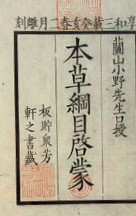 享和三年癸亥春二月雕刻
蘭山小野先生口授
本草綱目啓蒙
板貯衆芳
軒之書藏